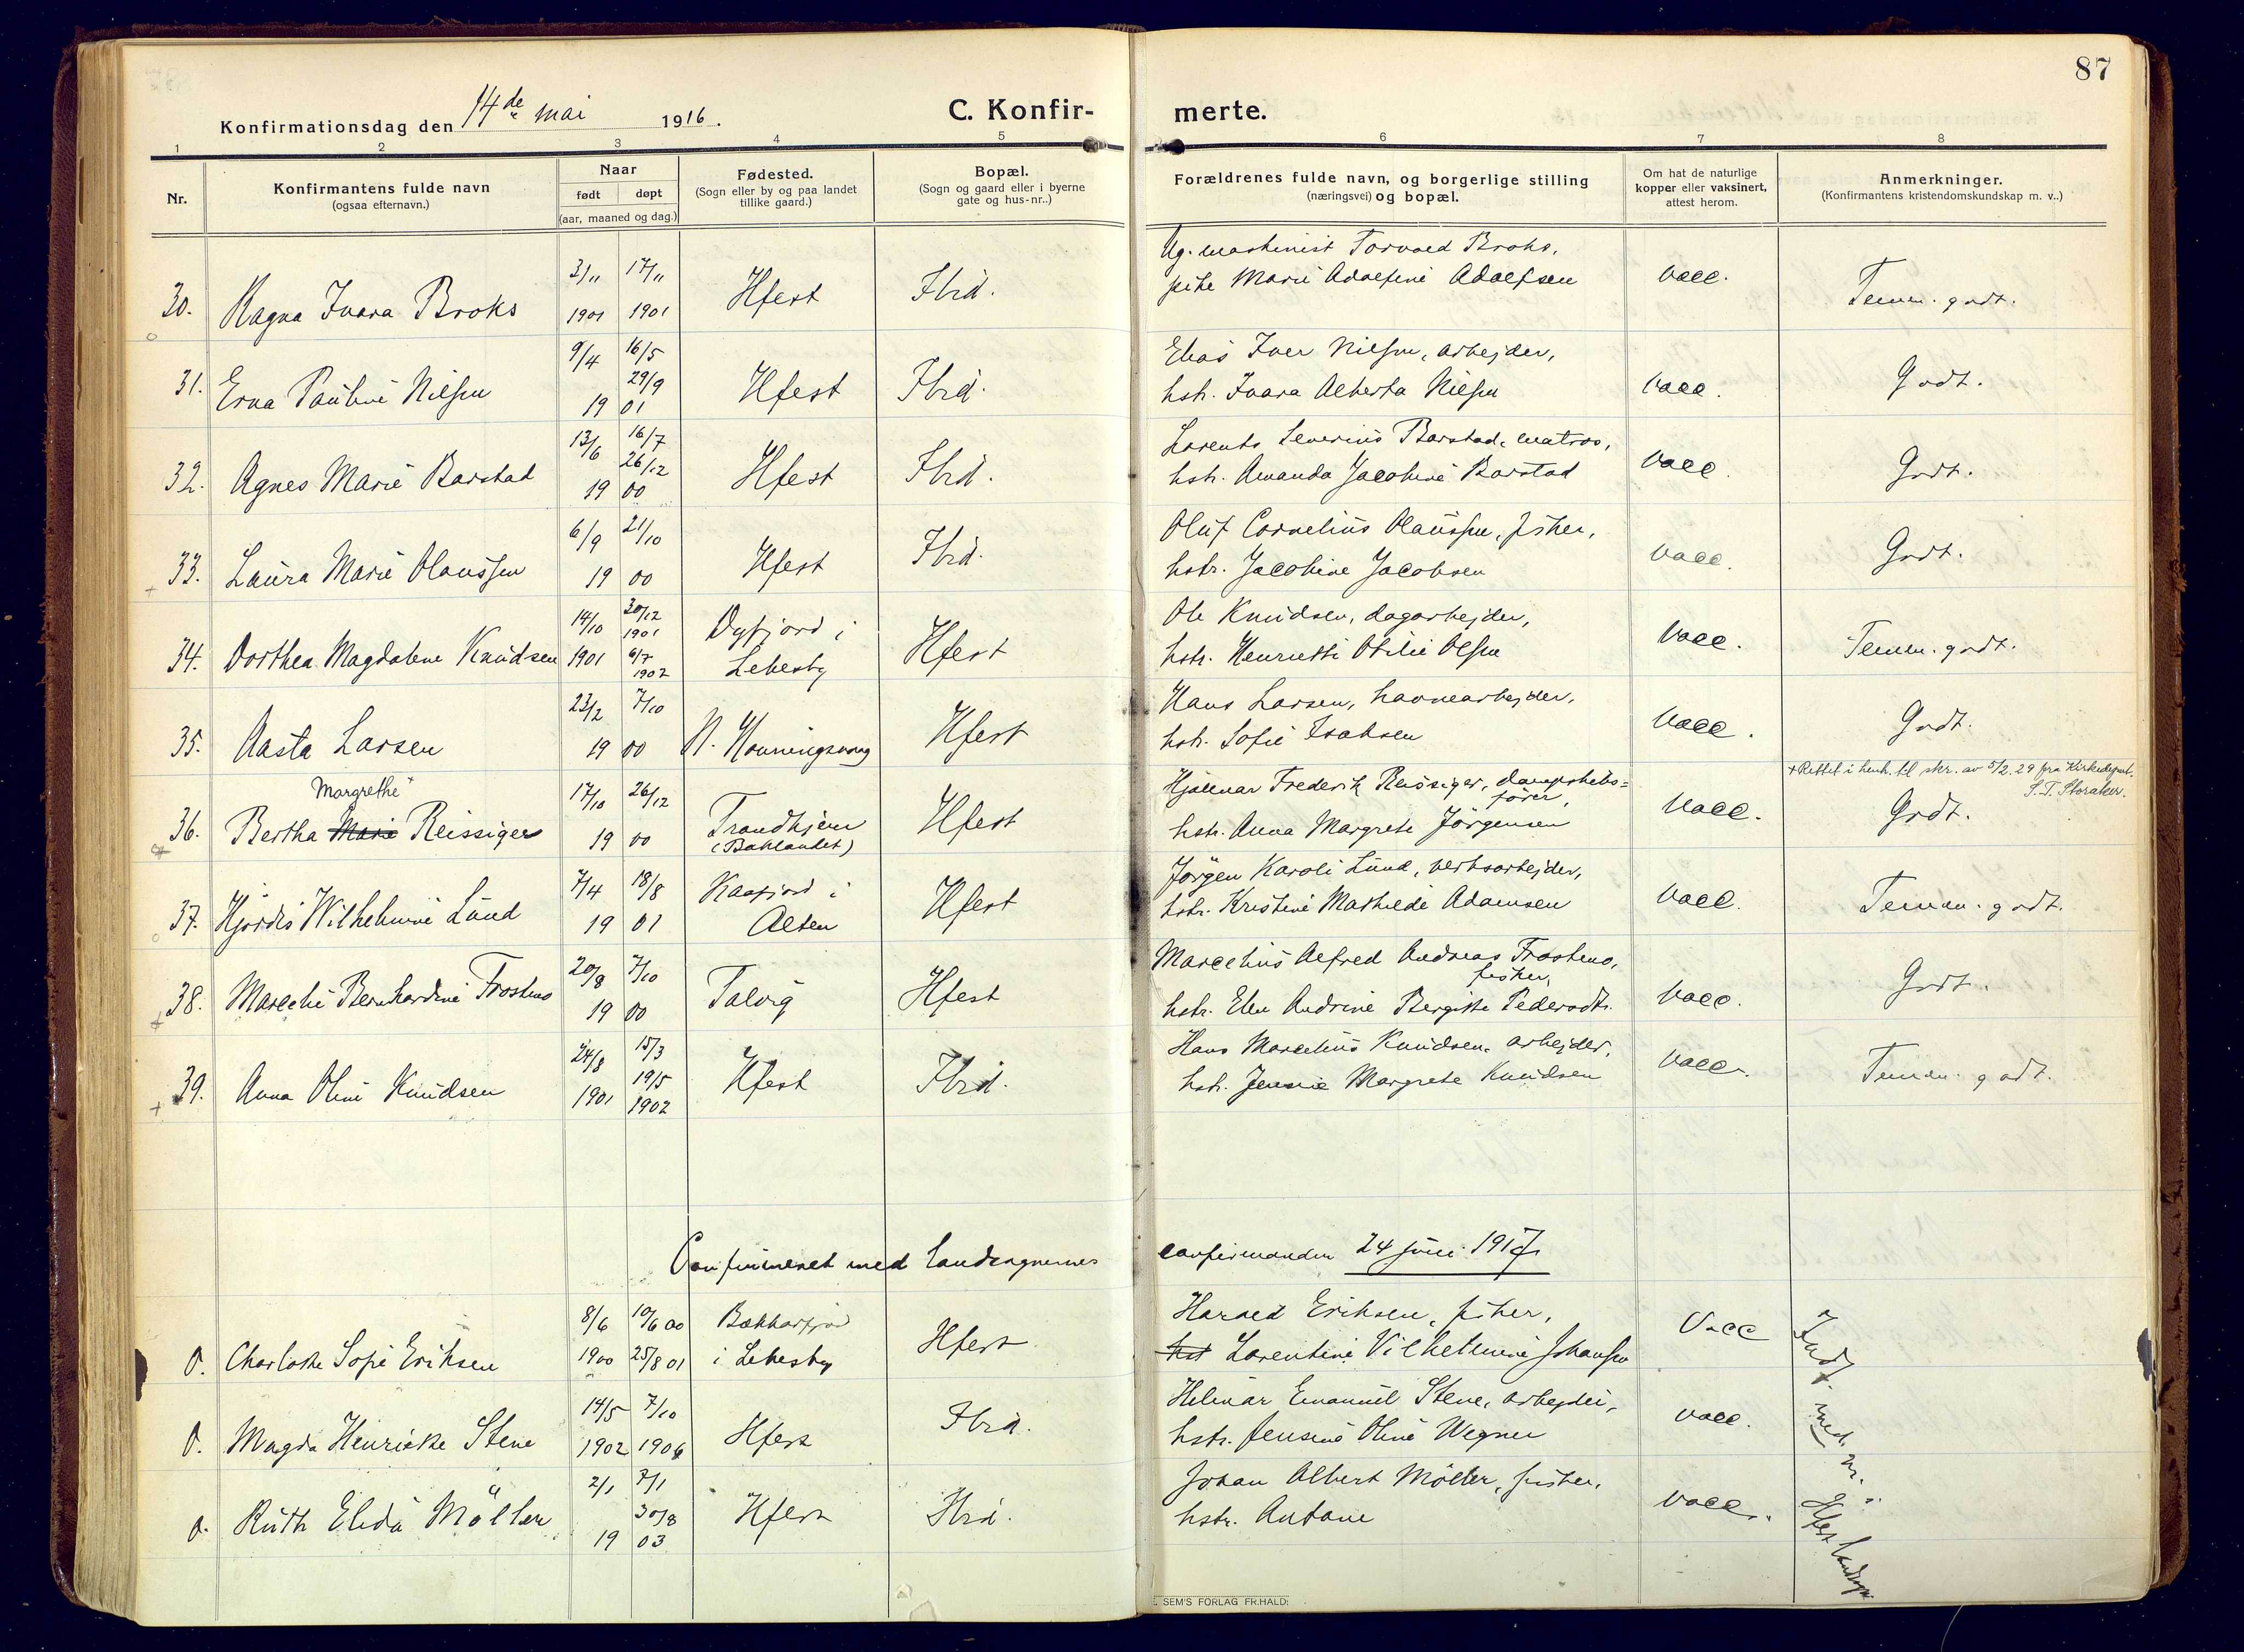 87
Konfirmationsdag den 14de mai 1916.
C. Konfirmerte.
1 2 3 4 5 6 7 8
Nr.
Konfirmantens fulde navn
(ogsaa efternavn.)
Naar
født døpt
(aar, maaned og dag.)
Fødested.
(Sogn eller by og paa landet
tillike gaard.)
Bopæl.
(Sogn og gaard eller i byerne
gate og hus-nr..)
Forældrenes fulde navn, og borgerlige stilling
(næringsvei) og bopæl.
Om hat de naturlige
kopper eller vaksinert,
attest herom.
Anmerkninger.
(Konfirmantens kristendomskundskap m. v..)
30. Ragna Ivara Broks 3/11 1901 17/11 1901 Hfest Ibid.
Ug. maskinist Torvald Broks,
pike Marie Adolfine Adolfsen vacc. Temm. godt.
31. Erna Pauline Nilsen 9/4 16/5 29/9 19 01 Hfest Ibid.
Elias Iver Nilsen, arbejder,
hstr. Ivara Alberta Nilsen vacc. Godt.
32. Agnes Marie Barstad 13/6 16/7 26/12 19 00 Hfest Ibid.
Lorents Severins Barstad, matros,
hstr. Amanda Jacobine Barstad vacc. Godt.
33. Laura Marie Olaussen 6/9 21/10 19 00 Hfest Ibid.
Oluf Cornelius Olaussen, fisker,
hstr. Jacobine Jacobsen vacc. Godt.
34. Dorthea Magdalene Knudsen 14/10 1901 30/12 1901 6/7 1902 Dyfjord i Lebesby Hfest
Ole Knudsen, dagarbejder,
hstr. Henriette Otilie Olsen vacc. Temm. godt.
35. Aasta Larsen 23/2 7/10 19 00 N. Honningsvaag Hfest
Hans Larsen, havnearbejder,
hstr. Sofie Isaksen vacc. Godt.
+ Rettet i henh. til skr. av 5/2. 29 fra Kirkedept.
S. T. Storaker.
Margrethe
36. Bertha Marie Reissiger 17/10 26/12 19 00 Trondhjem (Baklandet) Hfest
Hjalmar Frederik Reissiger, dampskibs=
fører,
hstr. Anna Margrete Jörgensen vacc. Godt.
37. Hjordis Wilhelmine Lund 7/4 18/8 19 01 Kaafjord i Alten Hfest
Jörgen Karoli Lund, verksarbejder,
hstr. Kristine Mathilde Adamsen vacc. Temm. godt.
38. Marcelie Bernhardine Frostmo 20/8 7/10 19 00 Talvig Hfest
Marcelius Alfred Andreas Frostmo,
fisker,
hstr. Elen Andrine Bergitte Pedersdtr. vacc. Godt.
39. Anna Oline Knudsen 24/8 1901 15/3 19/5 1902 Hfest Ibid.
Hans Marcelius Knudsen, arbejder,
hstr. Jensine Margrete Knudsen vacc. Temm. godt.
Confirmeret med landsognernes confirmander 24 juni 1917
0. Charlotte Sofie Eriksen 8/6 1900 10/6 00 25/8 01 Bekkarfjord i Lebesby Hfest
Harald Eriksen, fisker,
hst Lorentine Vilhelmine Johansen vacc
0. Magda Henrikke Stene 14/5 1902 7/10 1906 Hfest Ibid.
Hilmar Emanuel Stene, arbejder,
hstr. Jensine Oline Wegner vacc.
0. Ruth Elida Möller 2/1 7/1 30/8 19 03 Hfest Ibid.
Johan Albert Möller, fisker,
hstr. Antone vacc.
Indf. med nr. i Hfest landsogn
E. SEM'S FORLAG FR.HALD: